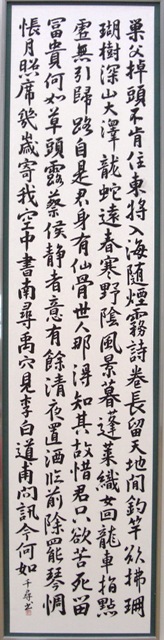 巣父掉頭不肯住東將入海随煙霧詩巻長留天地間釣竿欲拂珊
瑚樹深山大澤龍蛇遠春寒野陰風景暮蓬萊織女回龍車指點
虚無引歸路自是君身有仙骨世人那得知其故惜君只欲苦死留
富貴何如草頭露蔡侯静者意有餘清夜置酒臨前除罷琴惆
悵月照席幾歳寄我空中書南尋禹穴見李白道甫問訊今何如 千尋書